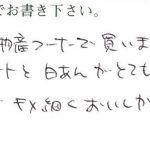 でお書き下さい。
物産コーナーで買いま
ートと白あんがとても
キメ細くおいしか